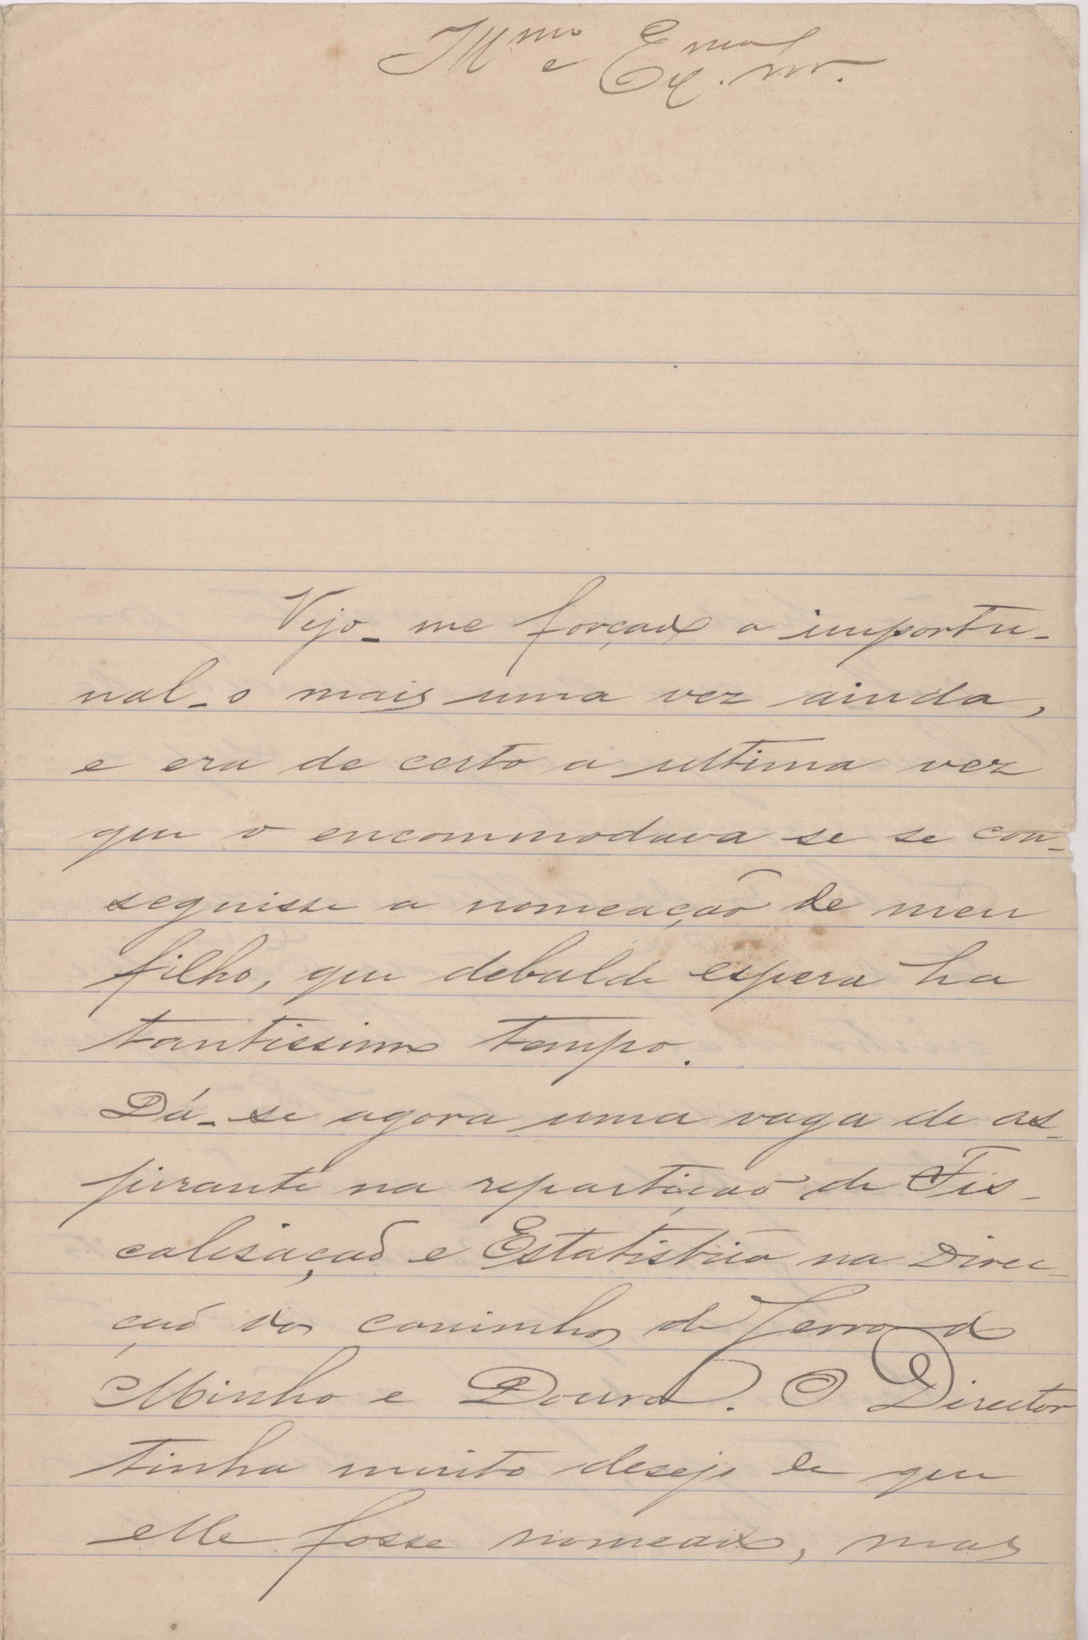 Illmo e Exmo Snr.
Vejo-me forçado a importu-
nal-o mais uma vez ainda,
e era de certo a ultima vez
que o encommodava se se con-
seguisse a nomeação de meu
filho, que debalde espera ha
tantissimo tempo.
Dá-se agora uma vaga de as-
pirante na repartição de Fis-
calisação e Estatistica na Direc-
ção dos caminhos de ferro do
Minho e Douro. O Director
tinha muito desejo de que
elle fosse nomeado, mas